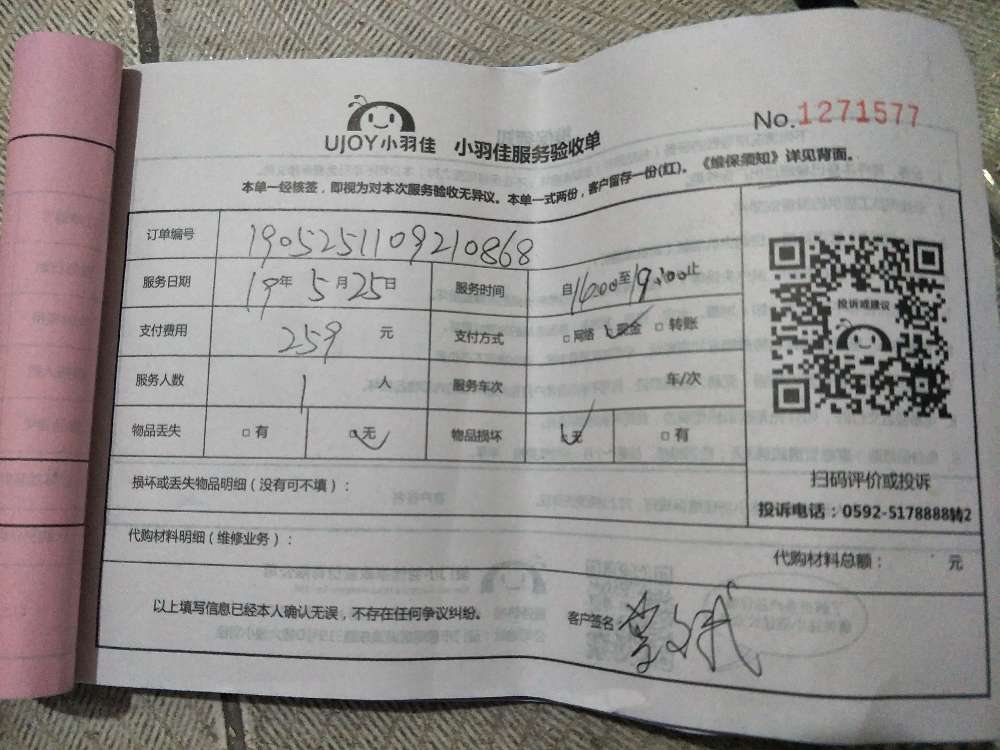 No.1271577
UJOY小羽佳 小羽佳服务验收单
本单一经核签，即视为对本次服务验收无异议。本单一式两份，客户留存一份(红)。《维保须知》详见背面。
订单编号 1905251109210868
服务日期 19年5月25日 服务时间 自16:00至19:00止
支付费用 259 元 支付方式 □网络 ✓现金 □转账
服务人数 1 人 服务车次 车/次
物品丢失 □有 ✓无 物品损坏 ✓无 □有
投诉或建议
扫码评价或投诉
投诉电话：0592-5178888转2
损坏或丢失物品明细（没有可不填）：
代购材料明细（维修业务）： 代购材料总额： 元
以上填写信息已经本人确认无误，不存在任何争议纠纷。 客户签名：